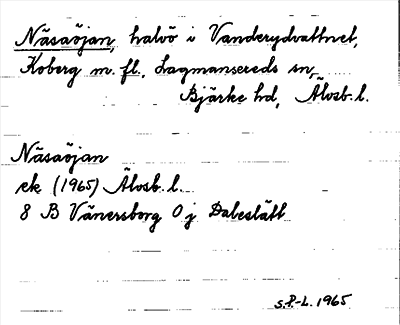 Näsaöjan, halvö i Vanderydvattnet,
Koberg m. fl., Lagmansereds sn,
Bjärke hd, Älvsb. l.
Näsaöjan
ek (1965) Älvsb. l.
8 B Vänersborg 0 j Dabeslätt
S.P-L. 1965